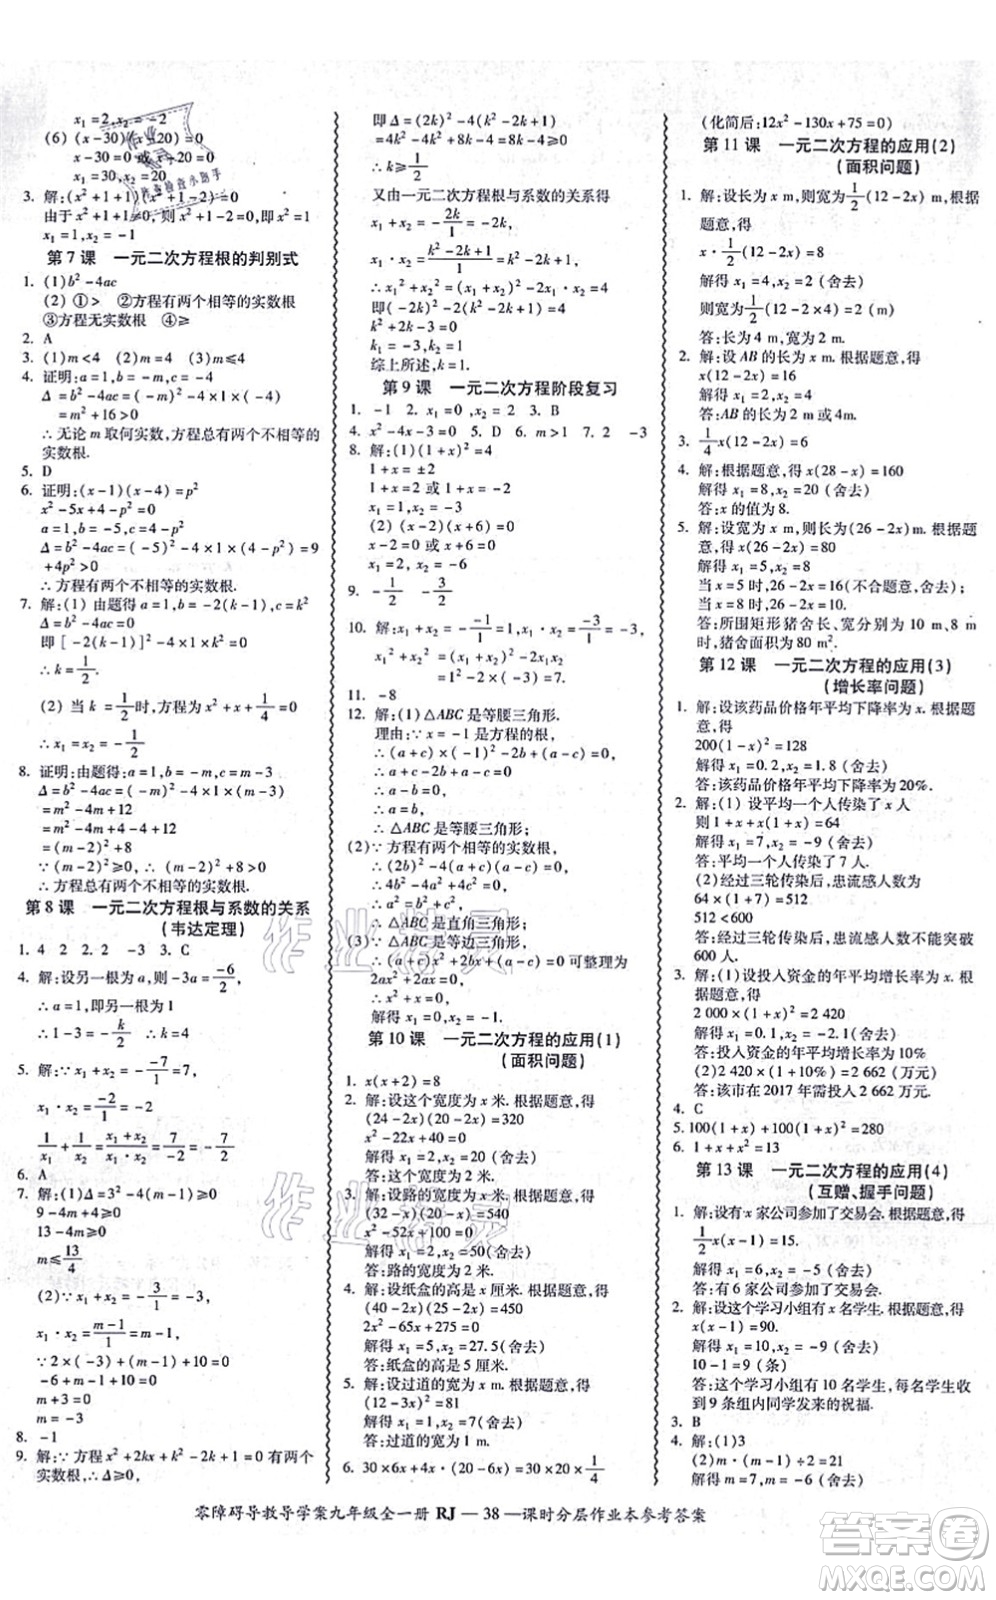 x₁=2,x₂=-2
(6) (x-30)(x-20)=0
x-30=0 或 x-20=0
x₁=30,x₂=20
3. 解:(x²+1+1)(x²+1-2)=0
由于 x²+1+1>0, 则 x²+1-2=0
x₁=1,x₂=-1
第 7 课 一元二次方程根的判别式
1. (1)b²-4ac
(2) ①> ②方程有两个相等的实数根
③方程无实数根 ④≥
2. A
3. (1)m<4 (2)m=4 (3)m≤4
4. 证明:a=1,b=-m,c=-4
Δ=b²-4ac=(-m)²-4×1×(-4)
=m²+16>0
∴无论 m 取何实数,方程总有两个不相等的实数根.
5. D
6. 证明:(x-1)(x-4)=p²
x²-5x+4-p²=0
a=1,b=-5,c=4-p²
Δ=b²-4ac=(-5)²-4×1×(4-p²)=9
+4p²>0
∴方程有两个不相等的实数根.
7. 解:(1) 由题得 a=1,b=-2(k-1),c=k²
Δ=b²-4ac=0
即[-2(k-1)]²-4×1×k²=0
∴k=1/2
(2) 当 k=1/2时,方程为 x²+x+1/4=0
∴x₁=x₂=-1/2
8. 证明:由题得:a=1,b=-m,c=m-3
Δ=b²-4ac=(-m)²-4×1×(m-3)
=m²-4m+12
=m²-4m+4+8
=(m-2)²+8
∵(m-2)²≥0,∴(m-2)²+8>0
∴方程总有两个不相等的实数根.
第 8 课 一元二次方程根与系数的关系
(韦达定理)
1. 4 2 2. 2 -3 3. C
4. 解:设另一根为 a,则 -3a=-6/2
∴a=1,即另一根为 1
∴1-3=-k/2 ∴k=4
5. 解:∵x₁+x₂=-(-7)/1=7,
x₁·x₂=-2/1=-2
∴1/x₁+1/x₂=(x₁+x₂)/(x₁x₂)=7/-2=-7/2
6. A
7. 解:(1)Δ=3²-4(m-1)≥0
9-4m+4≥0
13-4m≥0
m≤13/4
(2)∵x₁+x₂=-3,
x₁·x₂=(m-1)/1=m-1
∵2×(-3)+(m-1)+10=0
-6+m-1+10=0
m+3=0
m=-3
8. -1
9. 解:∵方程 x²+2kx+k²-2k+1=0 有两个
实数根,∴Δ≥0,
即 Δ=(2k)²-4(k²-2k+1)
=4k²-4k²+8k-4≥0
∴k≥1/2
又由一元二次方程根与系数的关系得
x₁+x₂=-2k/1=-2k
x₁·x₂=(k²-2k+1)/1=k²-2k+1
∴x₁²+x₂²=(x₁+x₂)²-2x₁x₂=4
即(-2k)²-2(k²-2k+1)=4
k²+2k-3=0
k₁=-3,k₂=1
综上所述,k=1.
第 9 课 一元二次方程阶段复习
1. -1 2. x₁=0,x₂=2 3. B
4. x²-4x-3=0 5. D 6. m>1 7. 2 -3
8. 解:(1)(1+x)²=4
1+x=±2
1+x=2 或 1+x=-2
x₁=1,x₂=-3
(2) (x-2)(x+6)=0
x-2=0 或 x+6=0
x₁=2,x₂=-6
9. -1/2 -3/2
10. 解:x₁+x₂=-(-1)/1=1,x₁·x₂=-3/1=-3,
x₁²+x₂²=(x₁+x₂)²-2x₁·x₂
=1²-2×(-3)=7
11. -8
12. 解:(1)△ABC 是等腰三角形.
理由:∵x=-1 是方程的根,
∴(a+c)×(-1)²-2b+(a-c)=0
∴a+c-2b+a-c=0
∴a-b=0
∴a=b
∴△ABC 是等腰三角形;
(2)∵方程有两个相等的实数根,
∴(2b)²-4(a+c)(a-c)=0
∴4b²-4a²+4c²=0
∴a²=b²+c²
∴△ABC 是直角三角形;
(3)∵△ABC 是等边三角形,
∴(a+c)x²+2bx+(a-c)=0 可整理为
2ax²+2ax=0
∴x²+x=0
解得:x₁=0,x₂=-1.
第 10 课 一元二次方程的应用(1)
(面积问题)
1. x(x+2)=8
2. 解:设这个宽度为 x 米.根据题意,得
(24-2x)(20-2x)=320
x²-22x+40=0
解得 x₁=2,x₂=20(舍去)
答:这个宽度为 2 米.
3. 解:设路的宽度为 x 米.根据题意,得
(32-x)(20-x)=540
x²-52x+100=0
解得 x₁=2,x₂=50(舍去)
答:路的宽度为 2 米.
4. 解:设纸盒的高是 x 厘米.根据题意,得
(40-2x)(25-2x)=450
2x²-65x+275=0
解得 x₁=5,x₂=27.5(舍去)
答:纸盒的高是 5 厘米.
5. 解:设过道的宽为 x m.根据题意,得
(10-x)²=81
解得 x₁=1,x₂=19(舍去)
答:过道的宽为 1 m.
6. 30×6x+20×4x-24x²=20×30×1/4
(化简后:12x²-130x+75=0)
第 11 课 一元二次方程的应用(2)
(面积问题)
1. 解:设长为 x m,则宽为1/2(12-2x) m,根据
题意,得
x·1/2(12-2x)=8
解得 x₁=4,x₂=2(舍去)
则宽为1/2(12-2×4)=2 (m)
答:长为 4 m,宽为 2 m.
2. 解:设 AB 的长为 x m.根据题意,得
x(16-2x)=30
解得 x₁=5,x₂=3(舍去)
答:AB 的长为 5 m.
3. 1/4x(12-x)=6
4. 解:根据题意,得 x(28-x)=160
解得 x₁=8,x₂=20(舍去)
答:x 的值为 8.
5. 解:设宽为 x m,则长为(26-2x)m.根据题
意,得 x(26-2x)=80
解得 x₁=5,x₂=8
当 x=5 时,26-2x=16(不合题意,舍去);
当 x=8 时,26-2x=10
答:所围矩形猪舍的长、宽分别为 10 m、8 m
时,猪舍面积为 80 m².
第 12 课 一元二次方程的应用(3)
(增长率问题)
1. 解:设该药品价格年平均下降率为 x.根据
题意,得
200(1-x)²=128
解得 x₁=0.2,x₂=1.8(舍去)
答:该药品价格年平均下降率为20%.
2. 解:(1) 设平均一个人传染了 x 人
则 1+x+x(1+x)=64
解得 x₁=7,x₂=-9(舍去)
答:平均一个人传染了 7 人.
(2)经过三轮传染后,患流感人数为
64×(1+7)=512
512<700
答:经过三轮传染后,患流感人数不能突破
700 人.
3. 解:(1)设投入资金的年平均增长率为 x.根
据题意,得
2 000×(1+x)²=2 420
解得 x₁=0.1,x₂=-2.1(舍去)
答:投入资金的年平均增长率为 10%
(2)2 420×(1+10%)=2 662 (万元)
答:该市在 2017 年需投入 2 662 万元.
4. C
5. 100(1+x)+100(1+x)²=280
6. 1+x+x²=13
第 13 课 一元二次方程的应用(4)
(互赠、握手问题)
1. 解:设有 x 家公司参加了交易会.根据题意,得
1/2x(x-1)=15.
解得 x₁=6,x₂=-5(舍去)
答:有 6 家公司参加了交易会.
2. 解:设这个学习小组有 x 名学生.根据题意,得
x(x-1)=90.
解得 x₁=10,x₂=-9(舍去)
10-1=9 (条)
答:这个学习小组有 10 名学生,每名学生收
到 9 条组内同学发来的祝福.
3. B
4. 解:(1)3
解得 x₁=5,x₂=-4(舍去)
零障碍导教导学案九年级全一册 RJ — 38 —课时分层作业本参考答案
作业精灵
作业精灵
作业
作业检查小助手
答案圈
MXQE.COM